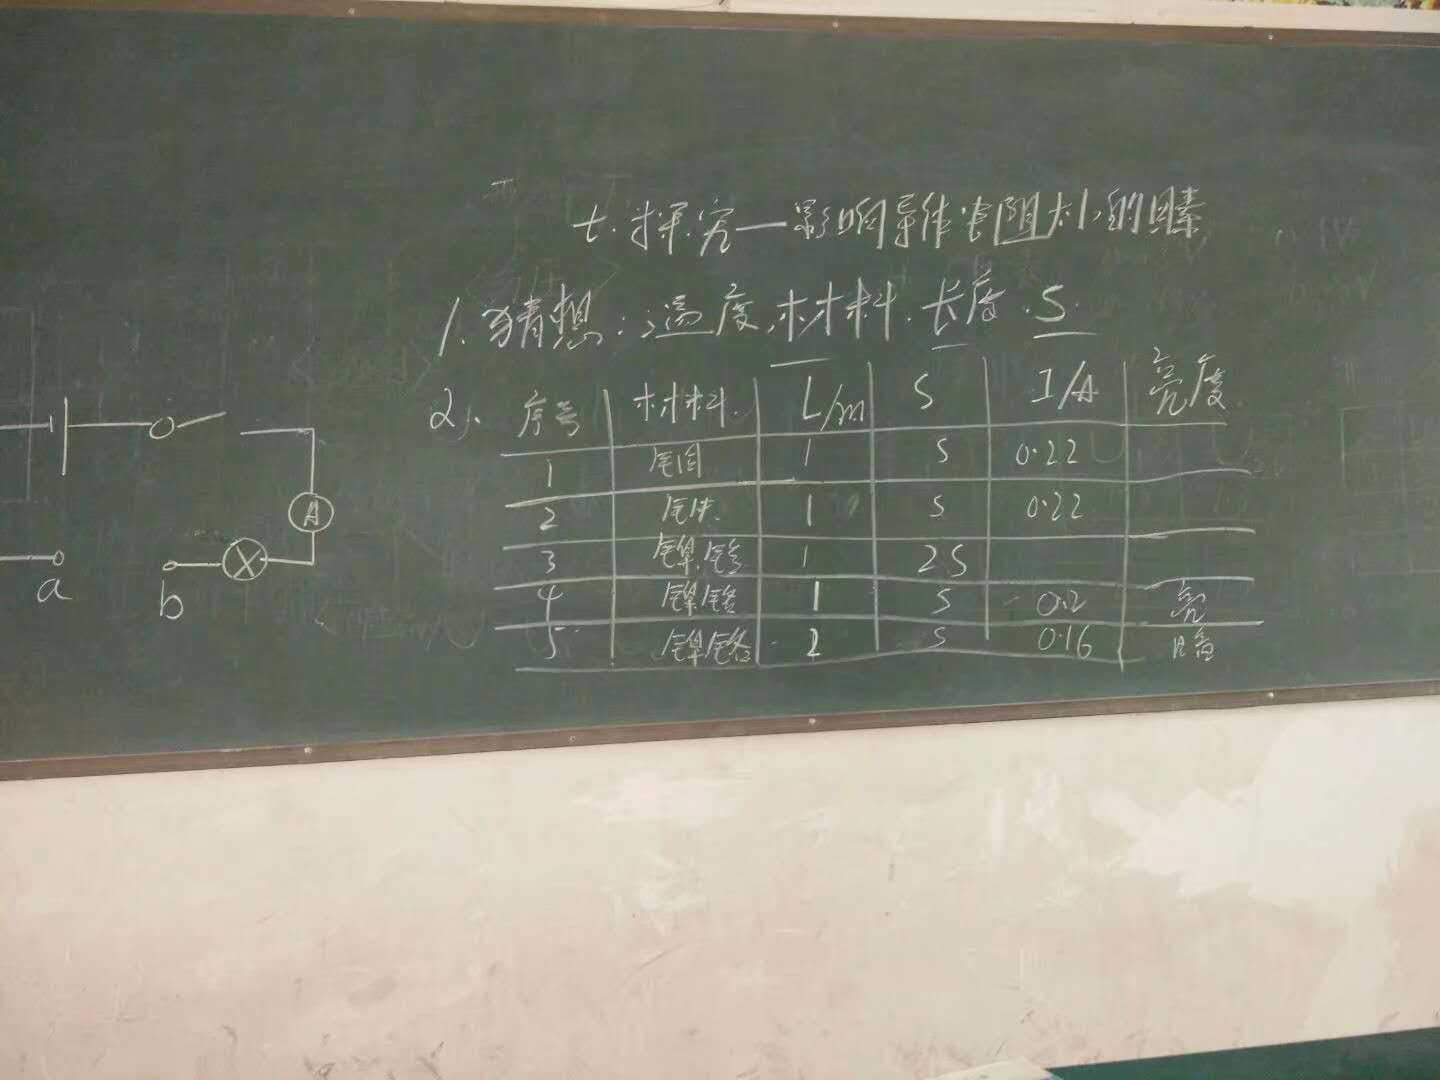 七.探究—影响导体电阻大小的因素
1.猜想:温度.材料.长度.S.
2). 序号 材料 L/m S I/A 亮度
1 铜 1 S 0.22
2 铁 1 S 0.22
3 镍铬 1 2S
4 镍铬 1 S 0.2 亮
5 镍铬 2 S 0.16 暗
A
a b